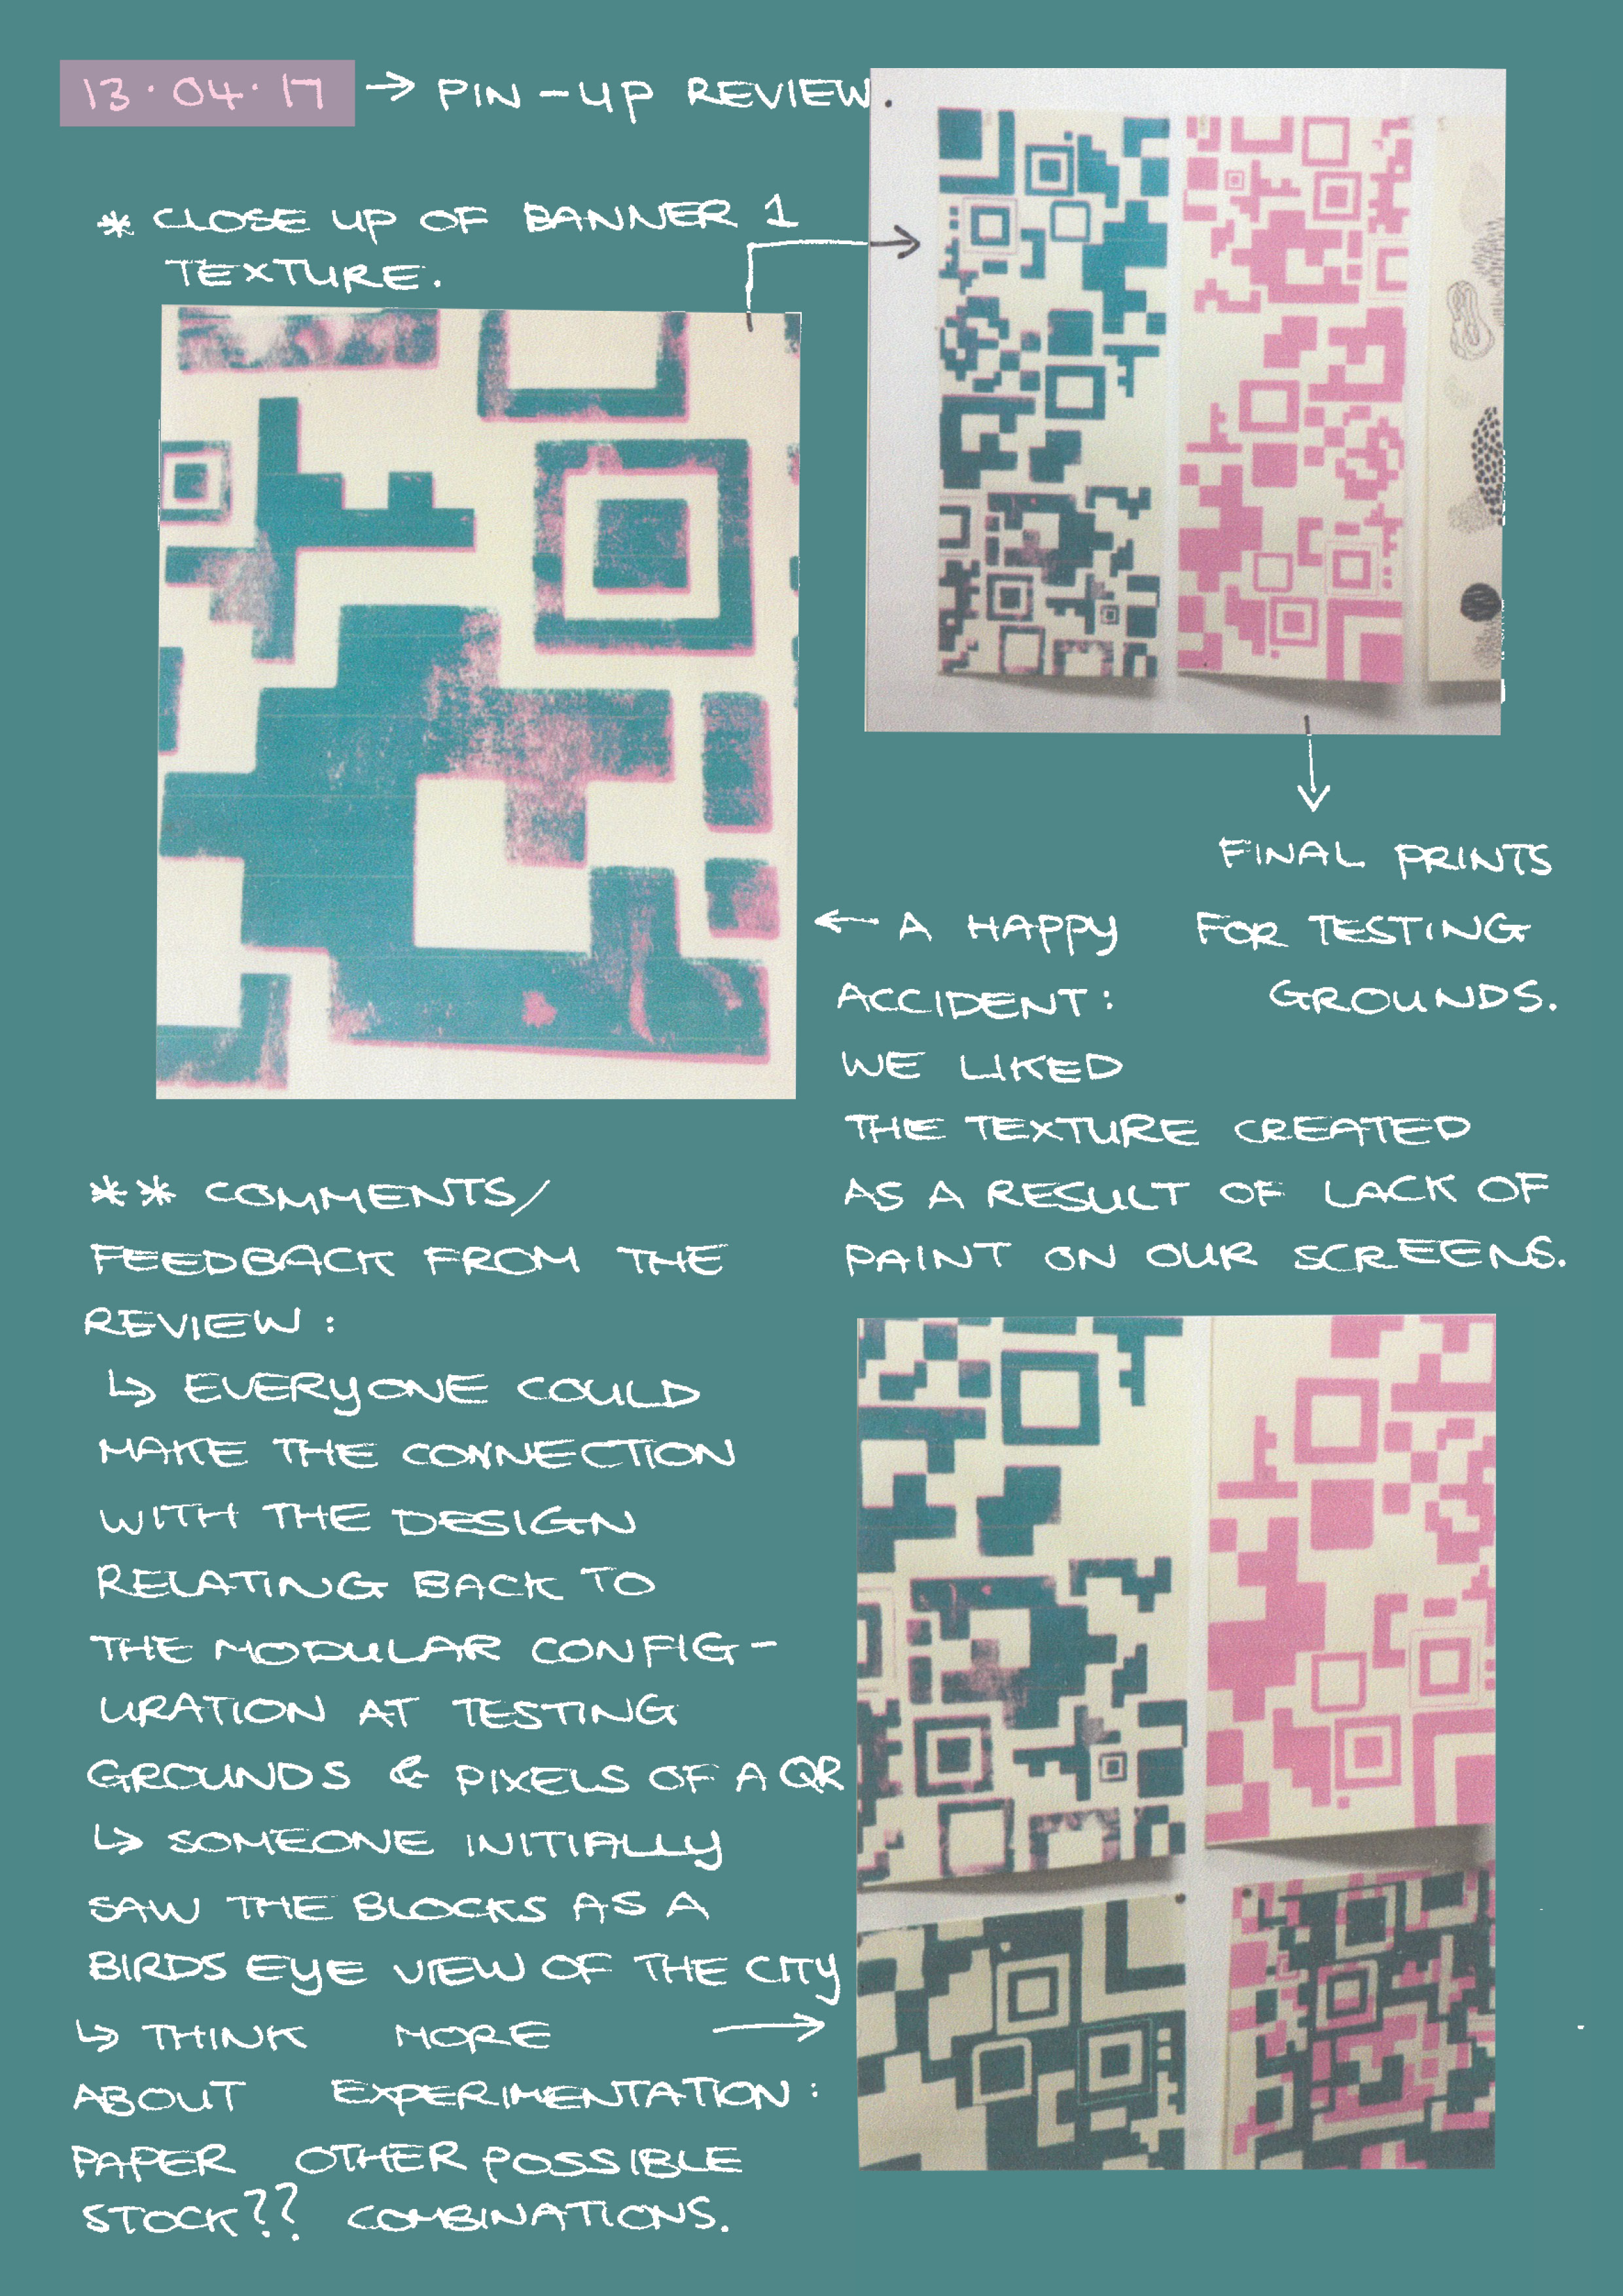 13.04.17 → PIN-UP REVIEW.
* CLOSE UP OF BANNER 1
TEXTURE.
FINAL PRINTS
FOR TESTING
GROUNDS.
← A HAPPY
ACCIDENT:
WE LIKED
THE TEXTURE CREATED
AS A RESULT OF LACK OF
PAINT ON OUR SCREENS.
** COMMENTS/
FEEDBACK FROM THE
REVIEW:
↳ EVERYONE COULD
MAKE THE CONNECTION
WITH THE DESIGN
RELATING BACK TO
THE MODULAR CONFIG-
URATION AT TESTING
GROUNDS & PIXELS OF A QR
↳ SOMEONE INITIALLY
SAW THE BLOCKS AS A
BIRDS EYE VIEW OF THE CITY
↳ THINK MORE →
ABOUT EXPERIMENTATION:
PAPER OTHER POSSIBLE
STOCK?? COMBINATIONS.